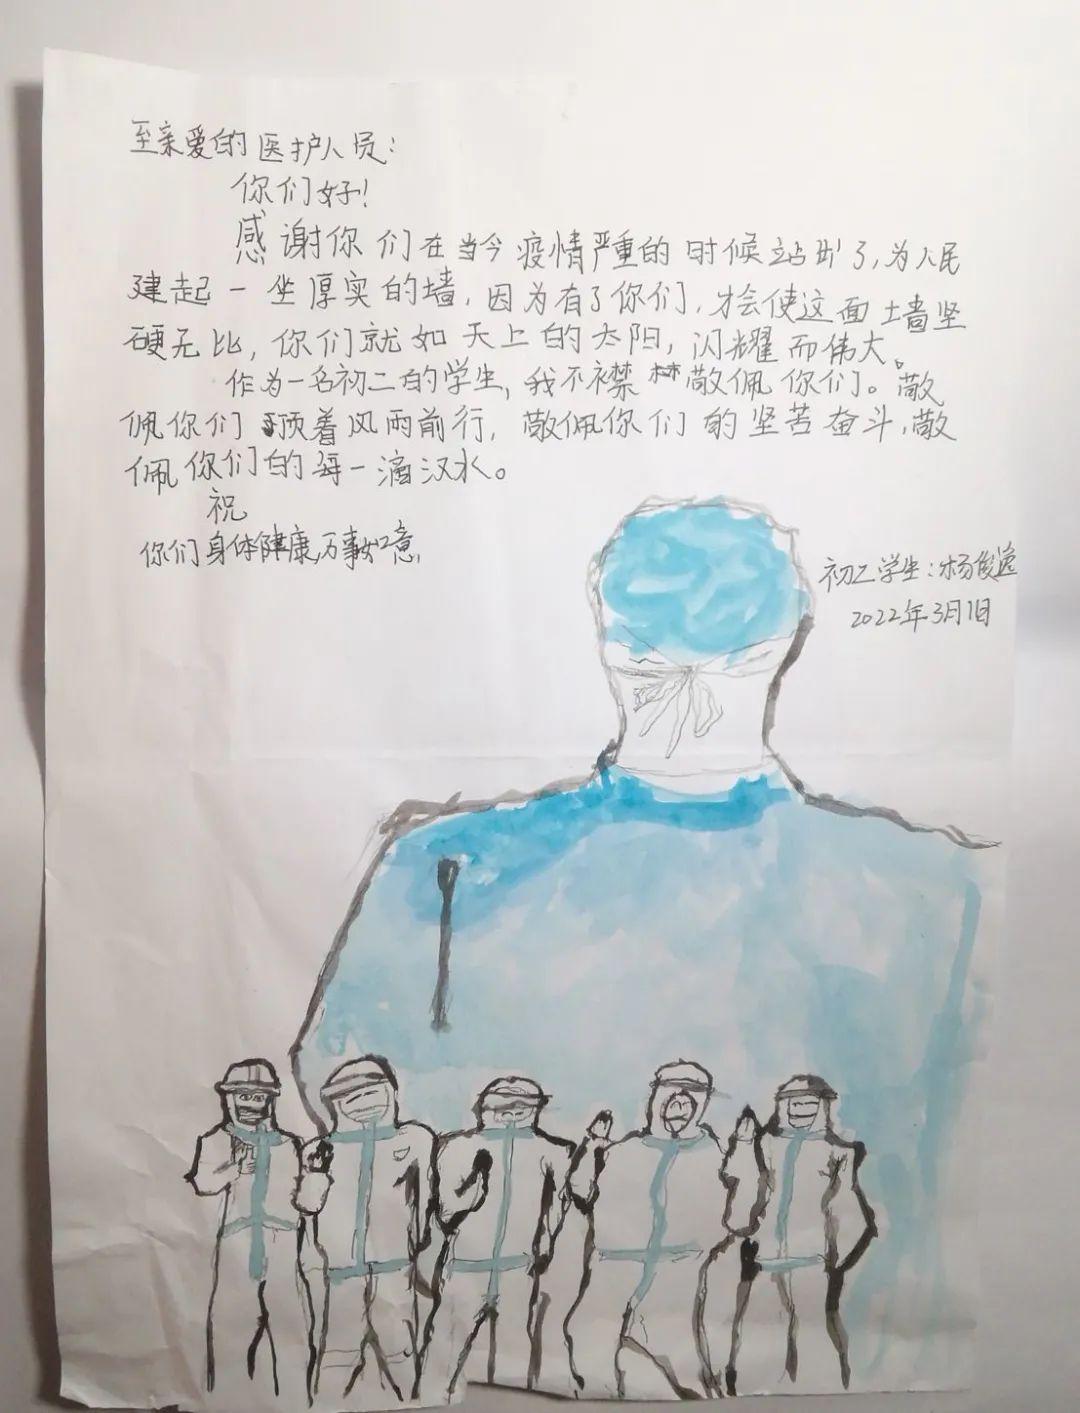 至亲爱的医护人员:
你们好!
感谢你们在当今疫情严重的时候站出了,为人民
建起一坐厚实的墙,因为有了你们,才会使这面墙坚
硬无比,你们就如天上的太阳,闪耀而伟大。
作为一名初二的学生,我不禁敬佩你们。敬
佩你们顶着风雨前行,敬佩你们的坚苦奋斗,敬
佩你们的每一滴汉水。
祝
你们身体健康,万事如意,
初二学生:杨俊逸
2022年3月1日